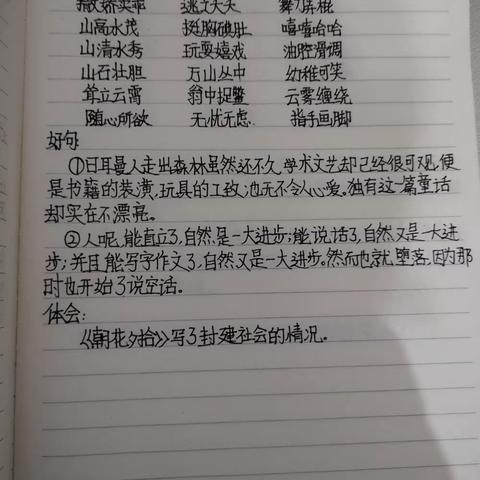 山高水茂 挺胸碘肚 嘻嘻哈哈
山清水秀 玩耍嬉戏 油腔滑调
山石壮胆 万山丛中 幼稚可笑
耸立云霄 瓮中捉鳖 云雾缠绕
随心所欲 无忧无虑 指手画脚
好句:
①日耳曼人走出森林虽然还不久,学术文艺却已经很可观,便
是书籍的装潢,玩具的工致,也无不令人心爱。独有这一篇童话
却实在不漂亮。
②人呢,能直立了,自然是一大进步;能说话了,自然又是一大进
步;并且能写字作文了,自然又是一大进步。然而也就堕落,因为那
时也开始了说空话。
体会:
《朝花夕拾》写了封建社会的情况。